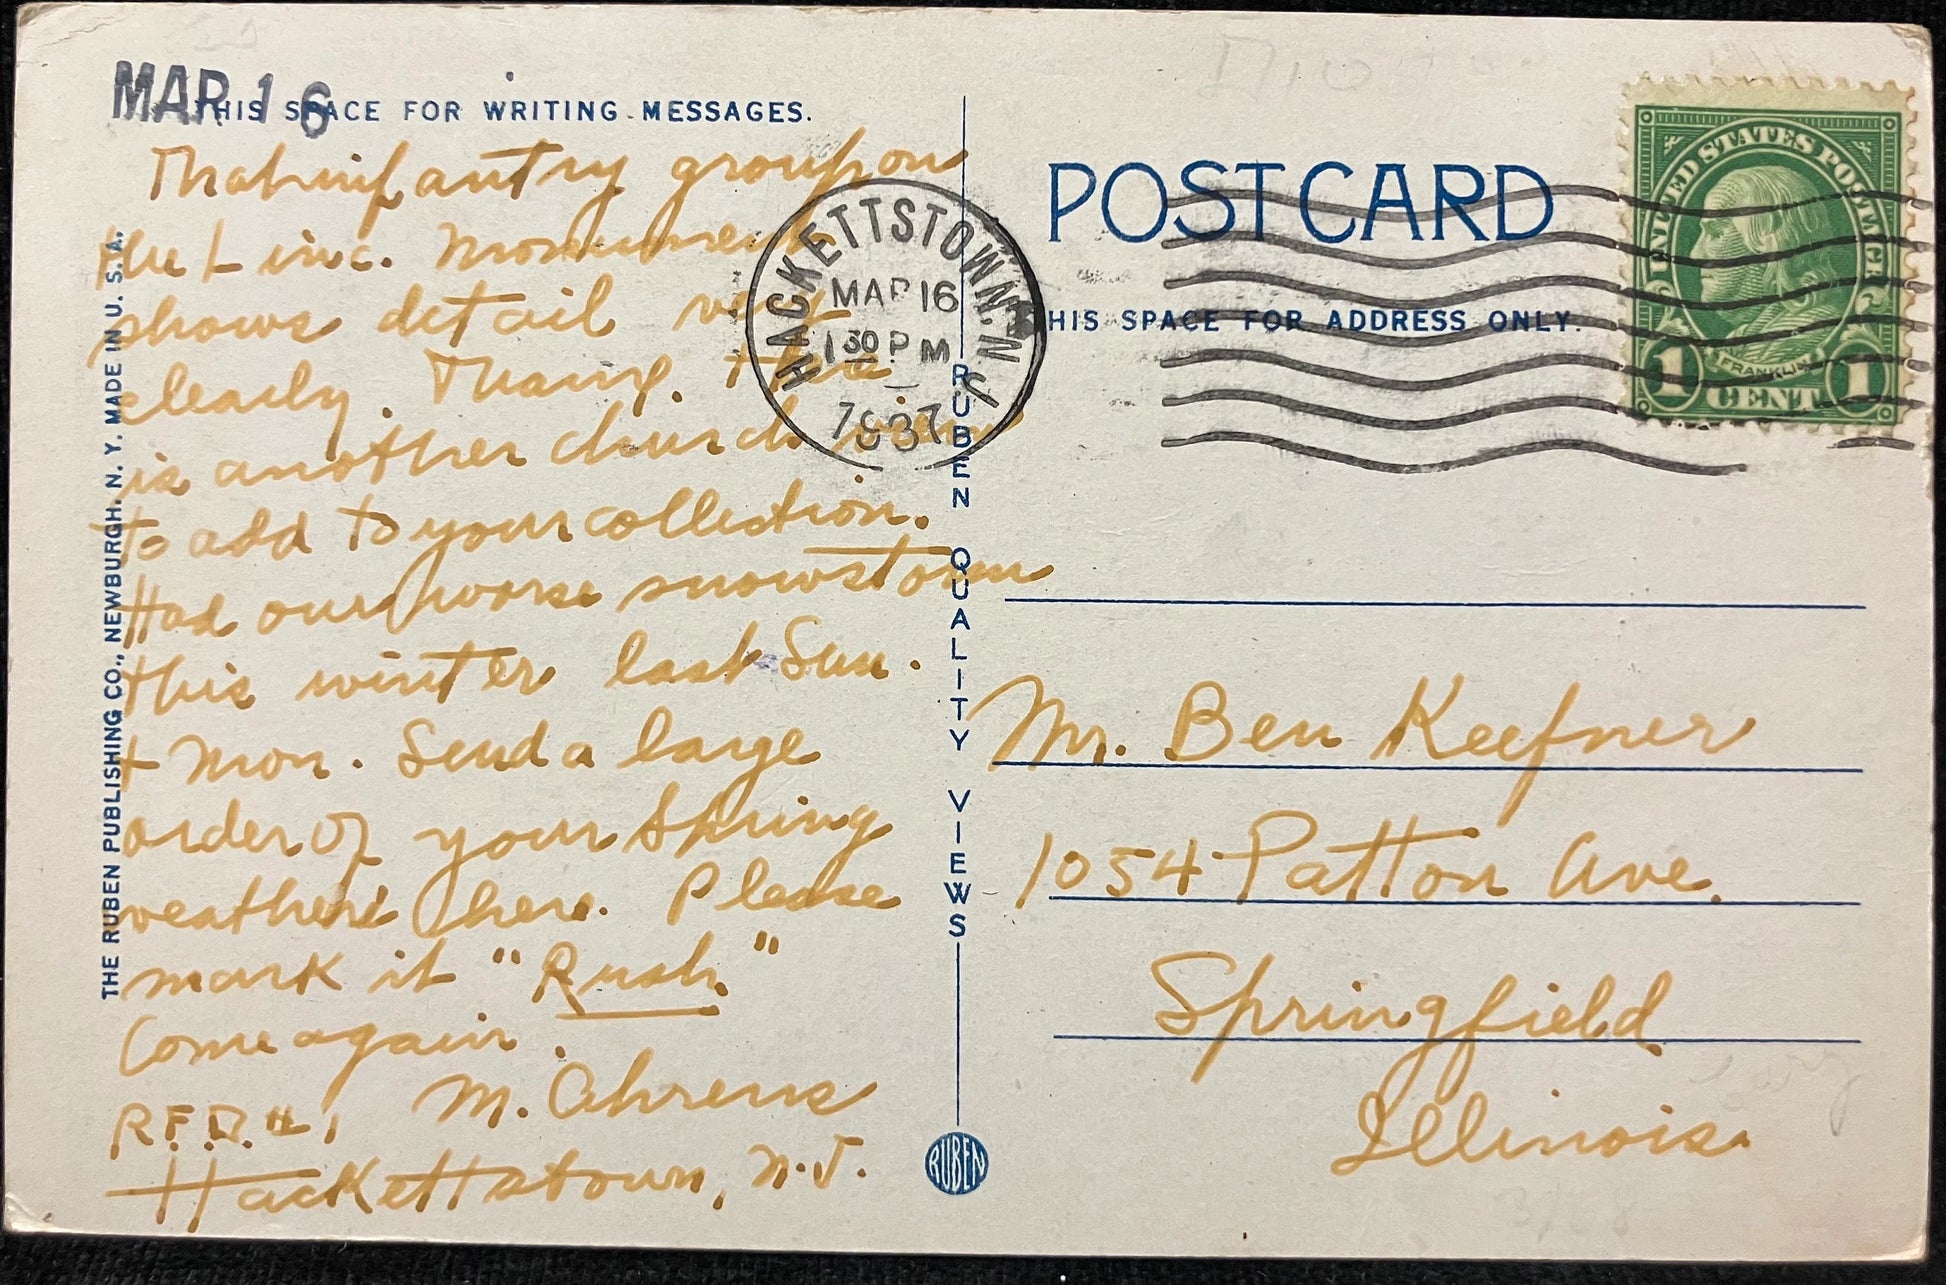 MAR 16
THIS SPACE FOR WRITING MESSAGES.
That infantry group on
the Linc. Monument
shows detail very
clearly. Thanx. This
is another church view
to add to your collection.
Had our worse snowstorm
this winter last Sun.
+ Mon. Send a large
order of your Spring
weather here. Please
mark it "Rush."
Come again.
M. Ahrens
R.F.D. #1
Hackettstown, N.J.
THE RUBEN PUBLISHING CO., NEWBURGH, N. Y. MADE IN U. S. A.
RUBEN QUALITY VIEWS
RUBEN
HACKETTSTOWN. N.J.
MAR 16
1 30 PM
1937
POST CARD
THIS SPACE FOR ADDRESS ONLY.
UNITED STATES POSTAGE
FRANKLIN
1 CENT 1
Mr. Ben Keefner
1054 Patton Ave.
Springfield
Illinois.